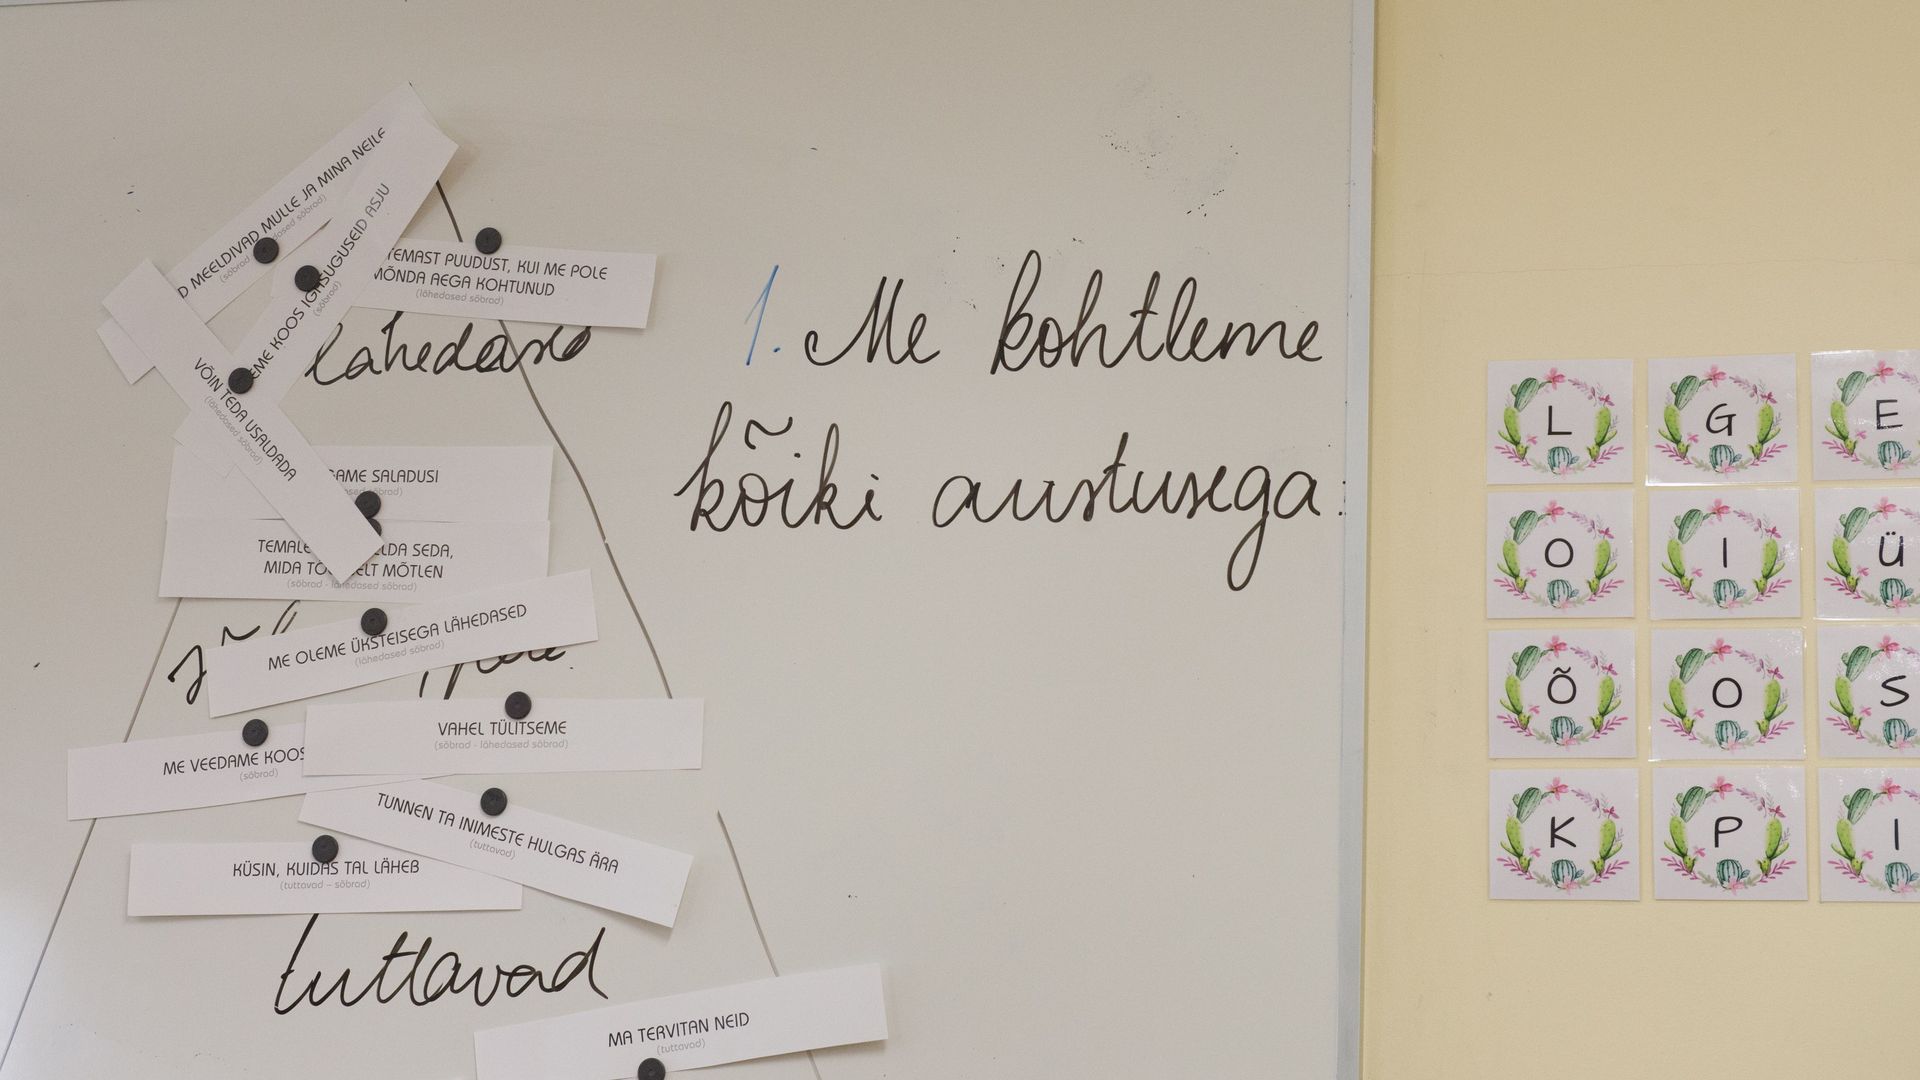 MEELDIVAD MULLE JA MINA NEILE
KOOS IGASUGUSEID ASJU
(sõbrad)
TEMAST PUUDUST, KUI ME POLE
MÕNDA AEGA KOHTUNUD
(lähedased sõbrad)
lähedased
VÕIN TEDA USALDADA
(lähedased sõbrad)
SALADUSI
SEDA,
MIDA MÕTLEN
(sõbrad - lähedased sõbrad)
ME OLEME ÜKSTEISEGA LÄHEDASED
(lähedased sõbrad)
VAHEL TÜLITSEME
(sõbrad - lähedased sõbrad)
ME VEEDAME KOOS
(sõbrad)
TUNNEN TA INIMESTE HULGAS ÄRA
(tuttavad)
KÜSIN, KUIDAS TAL LÄHEB
(tuttavad – sõbrad)
tuttavad
MA TERVITAN NEID
(tuttavad)
1. Me kohtleme
kõiki austusega.
L G E
O I Ü
Õ O S
K P I